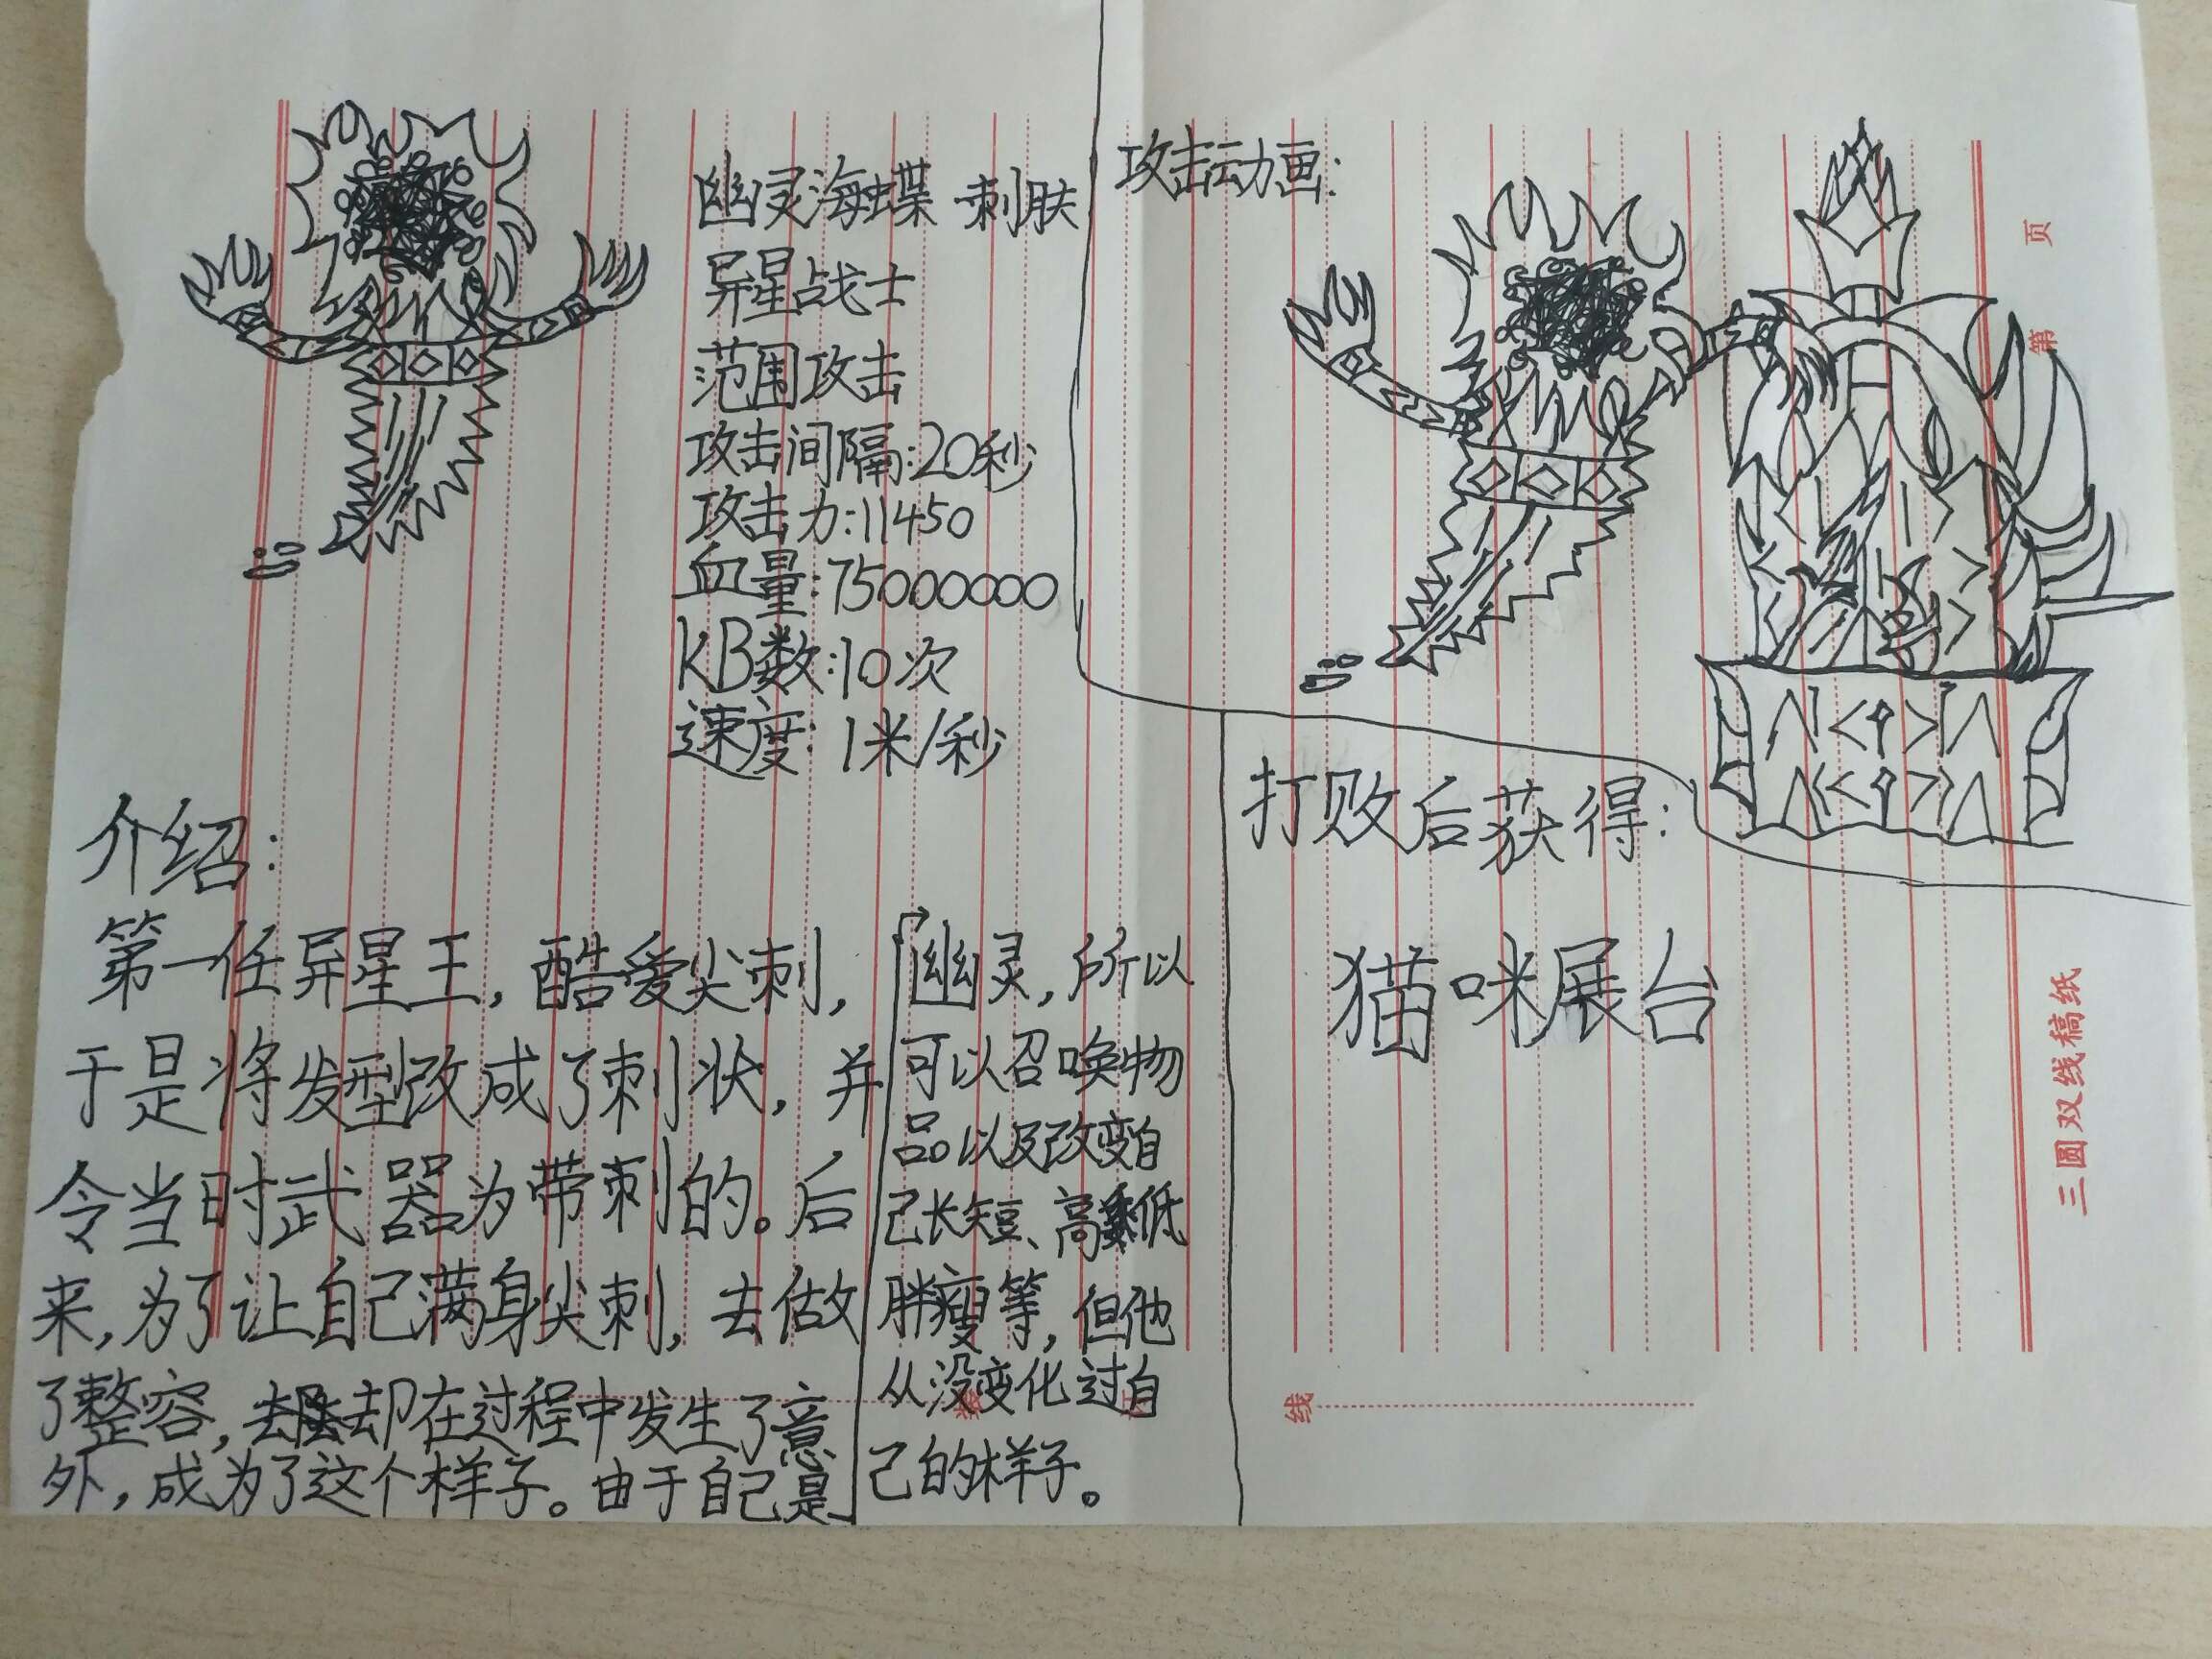 幽灵海蝶 刺肤
异星战士
范围攻击
攻击间隔:20秒
攻击力:11450
血量:75000000
KB数:10次
速度:1米/秒
介绍:
第一任异星王,酷爱尖刺,
于是将发型改成了刺状,并
令当时武器为带刺的。后
来,为了让自己满身尖刺,去做
了整容,却在过程中发生了意
外,成为了这个样子。由于自己是
幽灵,所以
可以召唤物
品以及改变自
己长短、高低
胖瘦等,但他
从没变化过自
己的样子。
攻击动画:
打败后获得:
猫咪展台
第 页
三圆双线稿纸
线